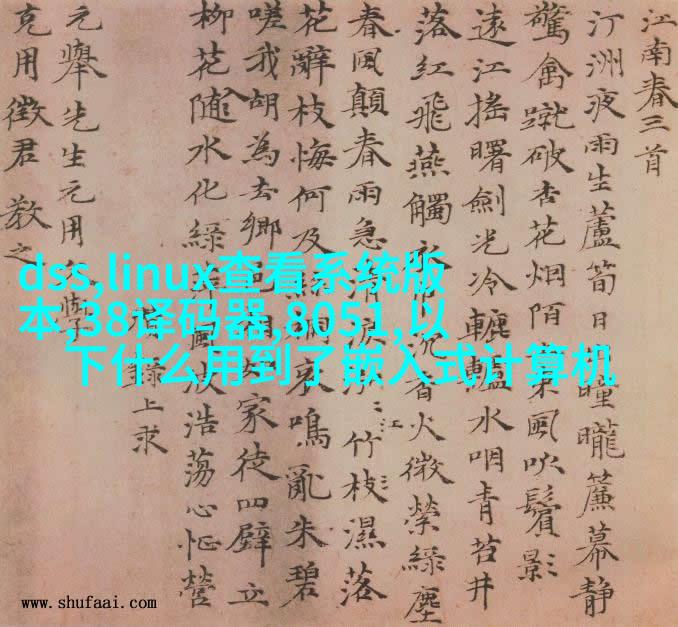 江南春三首
汀洲夜雨生蘆筍日曈曨簾幕靜
驚禽蹴破杏花烟陌東風吹鬢影
遠江搖曙劍光冷轆轤水咽青苔井
落紅飛燕觸沉香火微縈綠塵
春風顛春雨急淚江竹枝濕落
花辭枝悔何及哀鳴亂朱碧
嗟我胡為去鄉家徒四壁立
柳花隨水化綠風波浩蕩心怔營
錄上求
元舉先生元用學
克用徵君教之
dss,linux查看系统版
本,38译码器,8051,以
下什么用到了嵌入式计算机
www.shufaai.com